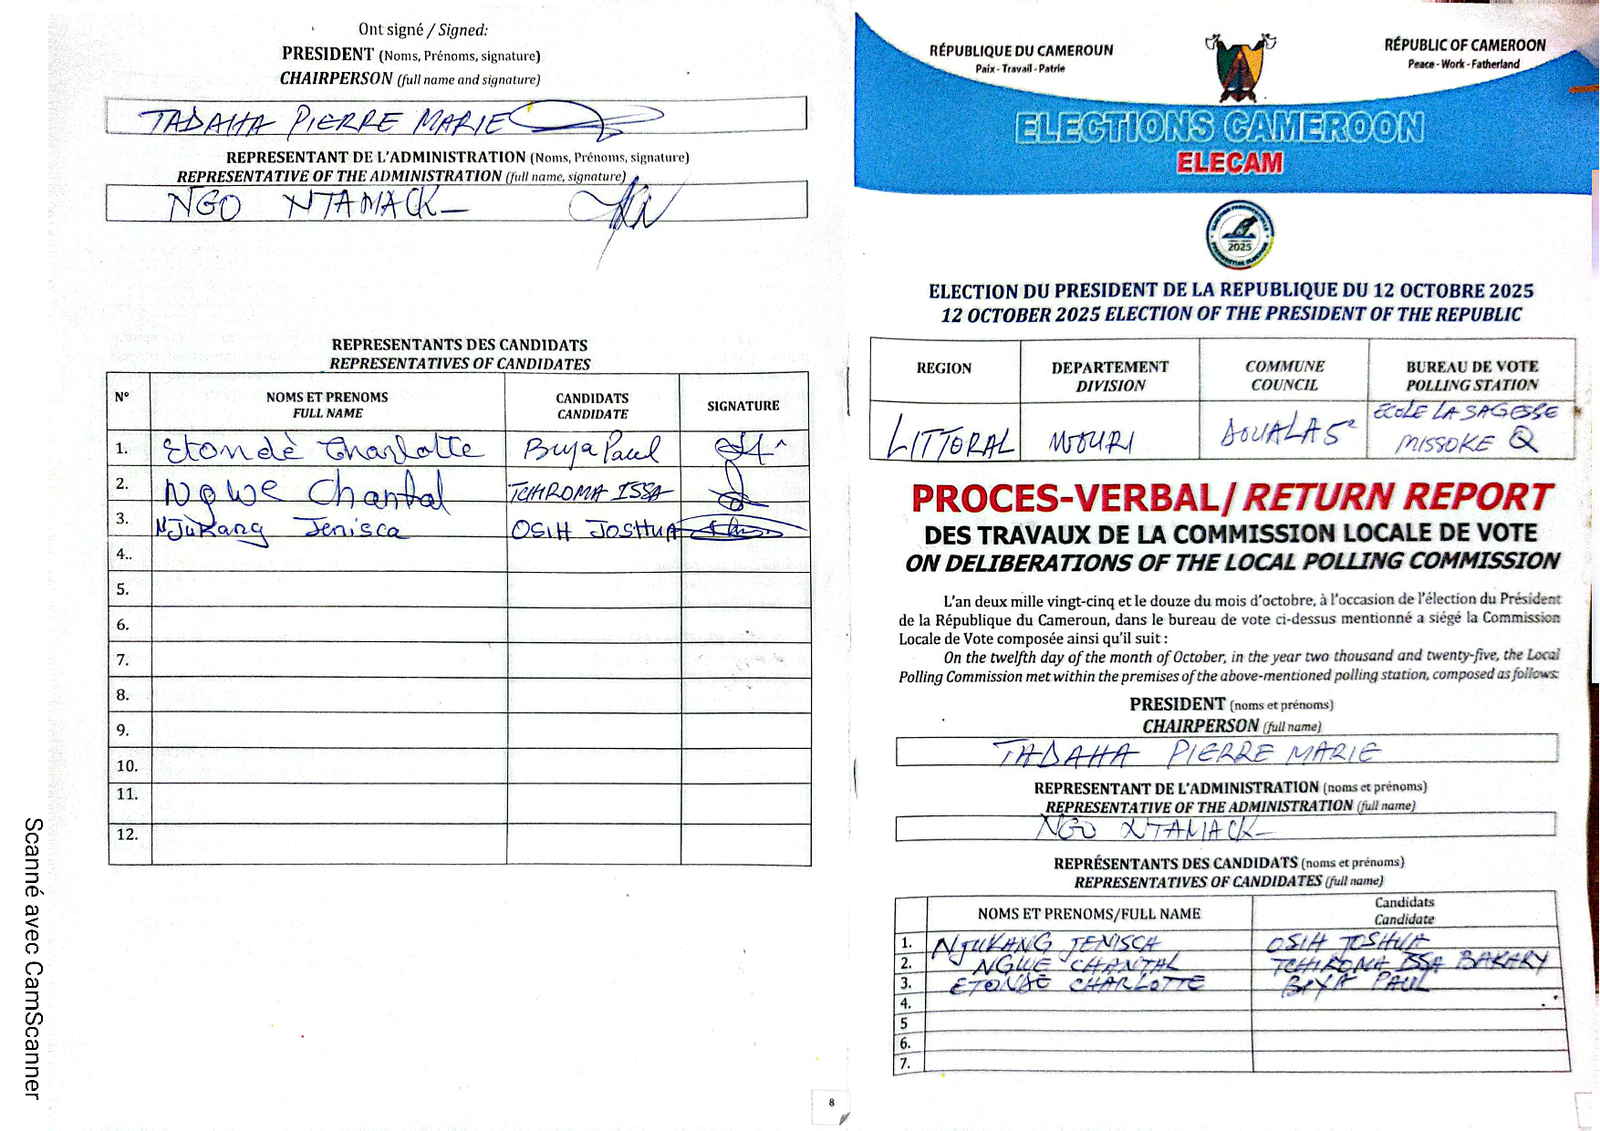 Ont signé / Signed:
PRESIDENT (Noms, Prénoms, signature)
CHAIRPERSON (full name and signature)
TADAHA PIERRE MARIE
REPRESENTANT DE L'ADMINISTRATION (Noms, Prénoms, signature)
REPRESENTATIVE OF THE ADMINISTRATION (full name, signature)
NGO NTAMACK
REPRESENTANTS DES CANDIDATS
REPRESENTATIVES OF CANDIDATES
N° NOMS ET PRENOMS FULL NAME CANDIDATS CANDIDATE SIGNATURE
1. Etondè Charlotte Biya Paul
2. Ngwe Chantal TCHIROMA ISSA
3. Njukang Jenisca OSIH JOSHUA
4..
5.
6.
7.
8.
9.
10.
11.
12.
8
Scanné avec CamScanner
RÉPUBLIQUE DU CAMEROUN
Paix - Travail - Patrie
RÉPUBLIC OF CAMEROON
Peace - Work - Fatherland
ELECTIONS CAMEROON
ELECAM
2025
ELECTION DU PRESIDENT DE LA REPUBLIQUE DU 12 OCTOBRE 2025
12 OCTOBER 2025 ELECTION OF THE PRESIDENT OF THE REPUBLIC
REGION DEPARTEMENT DIVISION COMMUNE COUNCIL BUREAU DE VOTE POLLING STATION
LITTORAL WOURI DOUALA 5e ECOLE LA SAGESSE MISSOKE Q
PROCES-VERBAL/ RETURN REPORT
DES TRAVAUX DE LA COMMISSION LOCALE DE VOTE
ON DELIBERATIONS OF THE LOCAL POLLING COMMISSION
L'an deux mille vingt-cinq et le douze du mois d'octobre, à l'occasion de l'élection du Président
de la République du Cameroun, dans le bureau de vote ci-dessus mentionné a siégé la Commission
Locale de Vote composée ainsi qu'il suit :
On the twelfth day of the month of October, in the year two thousand and twenty-five, the Local
Polling Commission met within the premises of the above-mentioned polling station, composed as follows:
PRESIDENT (noms et prénoms)
CHAIRPERSON (full name)
TADAHA PIERRE MARIE
REPRESENTANT DE L'ADMINISTRATION (noms et prénoms)
REPRESENTATIVE OF THE ADMINISTRATION (full name)
NGO NTAMACK
REPRÉSENTANTS DES CANDIDATS (noms et prénoms)
REPRESENTATIVES OF CANDIDATES (full name)
NOMS ET PRENOMS/FULL NAME Candidats Candidate
1. NJUKANG JENISCA OSIH JOSHUA
2. NGWE CHANTAL TCHIROMA ISSA BAKARY
3. ETONDE CHARLOTTE BIYA PAUL
4.
5
6.
7.